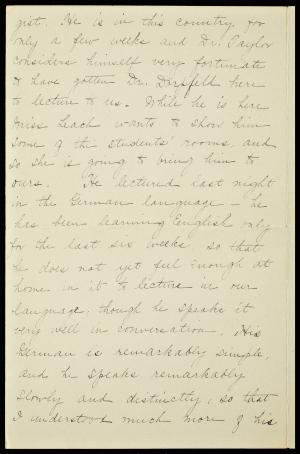 gist. He is in this country for
only a few weeks and Dr. Taylor
considers himself very fortunate
to have gotten Dr. Dörpfeld here
to lecture to us. While he is here
Miss Leach wants to show him
some of the students' rooms, and
so she is going to bring him to
ours. He lectured last night
in the German language – he
has been learning English only
for the last six weeks so that
he does not yet feel enough at
home in it to lecture in our
language, though he speaks it
very well in conversation. His
German is remarkably simple,
and he speaks remarkably
slowly and distinctly, so that
I understood much more of his